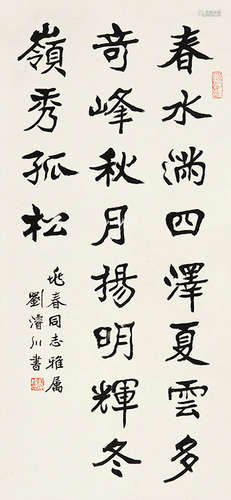 春水滿四澤夏雲多
奇峰秋月揚明輝冬
嶺秀孤松
兆春同志雅属
劉濬川書